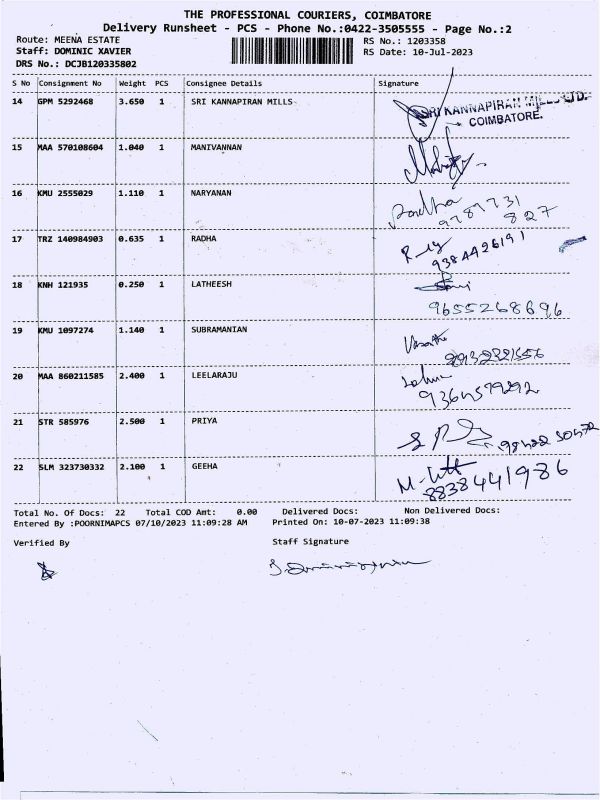 THE PROFESSIONAL COURIERS, COIMBATORE
Delivery Runsheet - PCS - Phone No.:0422-3505555 - Page No.:2
Route: MEENA ESTATE RS No.: 1203358
Staff: DOMINIC XAVIER RS Date: 10-Jul-2023
DRS No.: DCJB120335802
S No Consignment No Weight PCS Consignee Details Signature
14 GPM 5292468 3.650 1 SRI KANNAPIRAN MILLS SRI KANNAPIRAN MILLS LTD.
COIMBATORE.
15 MAA 570108604 1.040 1 MANIVANNAN
16 KMU 2555029 1.110 1 NARYANAN
9787731
827
17 TRZ 140984903 0.635 1 RADHA
9384426191
18 KNH 121935 0.250 1 LATHEESH
9655268696
19 KMU 1097274 1.140 1 SUBRAMANIAN
20 MAA 860211585 2.400 1 LEELARAJU
9364579292
21 STR 585976 2.500 1 PRIYA
22 SLM 323730332 2.100 1 GEEHA
8838441986
Total No. Of Docs: 22 Total COD Amt: 0.00 Delivered Docs: Non Delivered Docs:
Entered By :POORNIMAPCS 07/10/2023 11:09:28 AM Printed On: 10-07-2023 11:09:38
Verified By Staff Signature